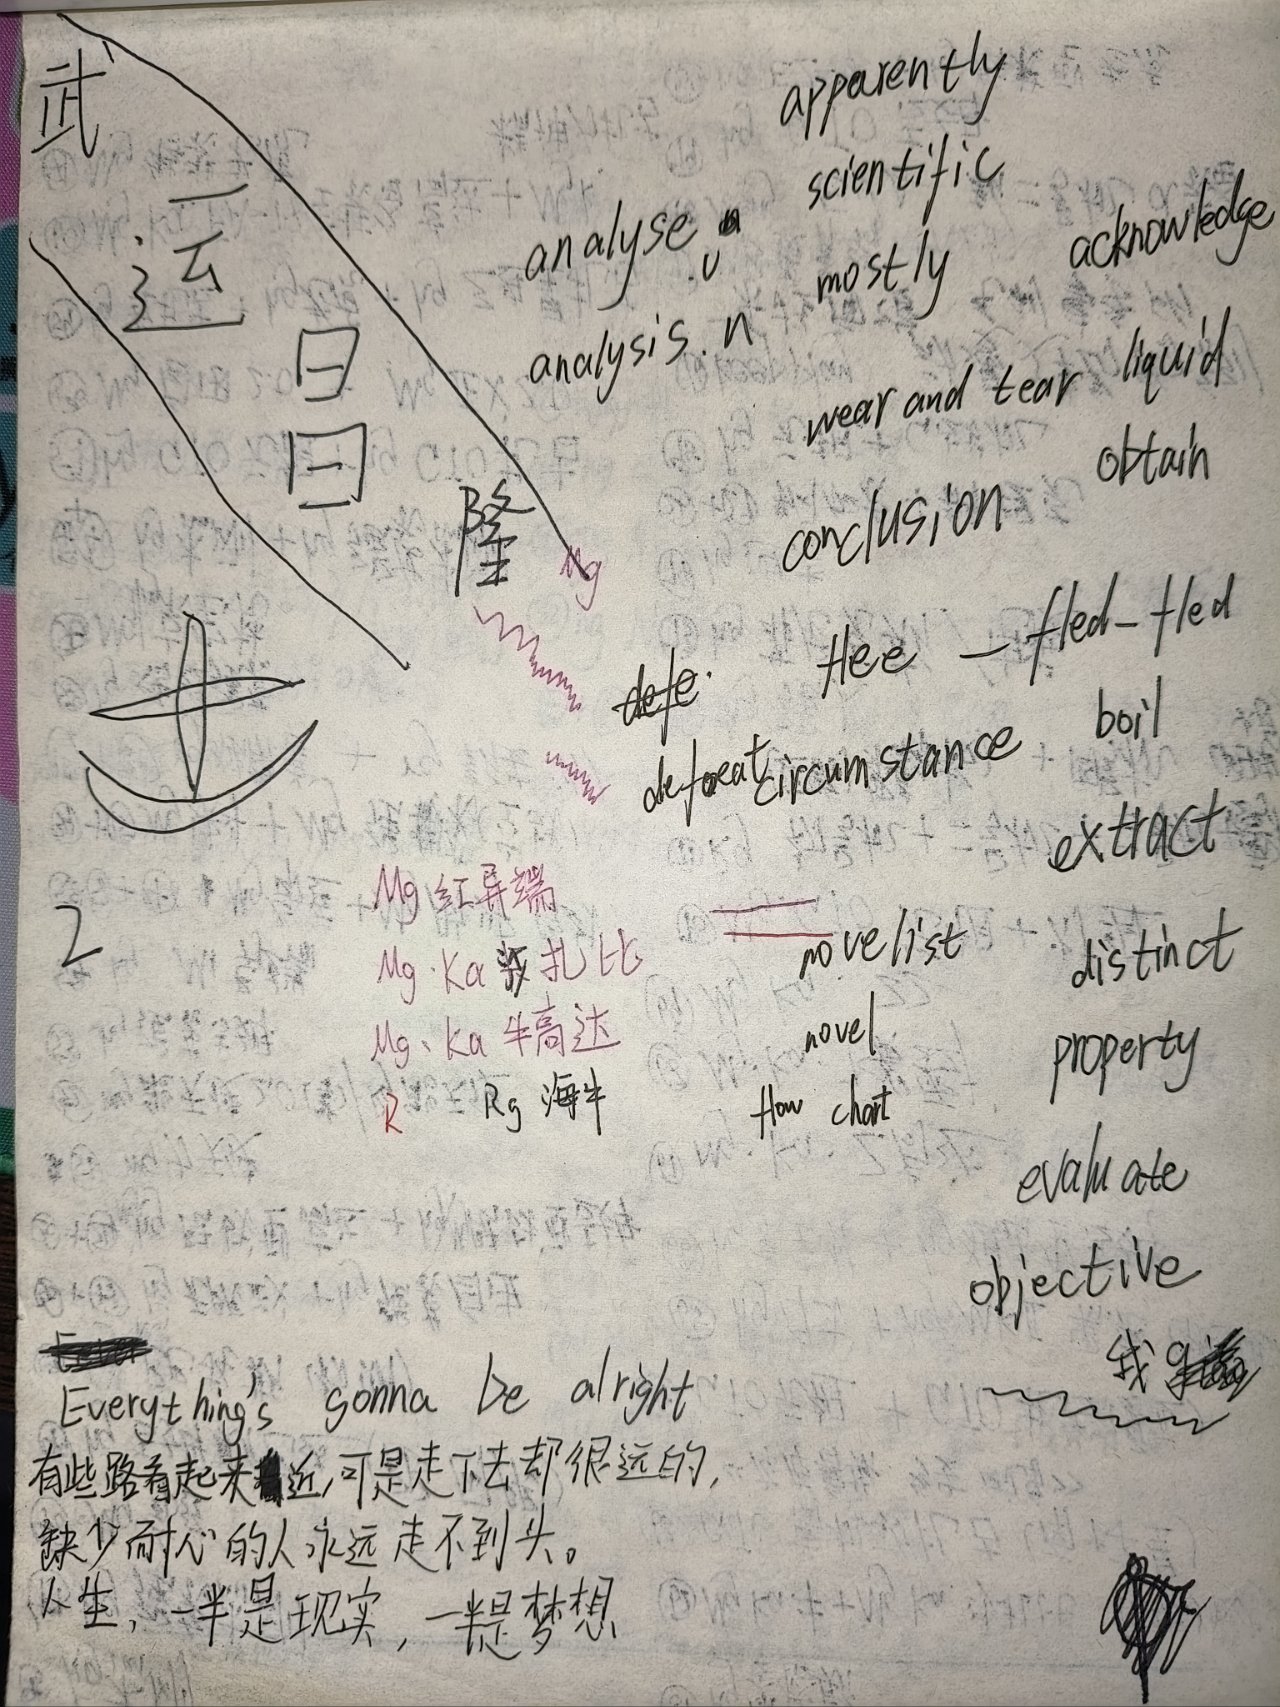 武
运
日日
隆
Mg
apparently
scientific
analyse
mostly
acknowledge
analysis. n
wear and tear
liquid
obtain
conclusion
flee — fled - fled
defeat
circumstance
boil
extract
Mg 红异端
Mg. Ka 扎比
Mg、Ka 牛高达
R Rg 海牛
2
novelist
distinct
novel
property
flow chart
evaluate
objective
我
Everything's gonna be alright
有些路看起来近,可是走下去却很远的,
缺少耐心的人永远走不到头。
人生,一半是现实,一半是梦想